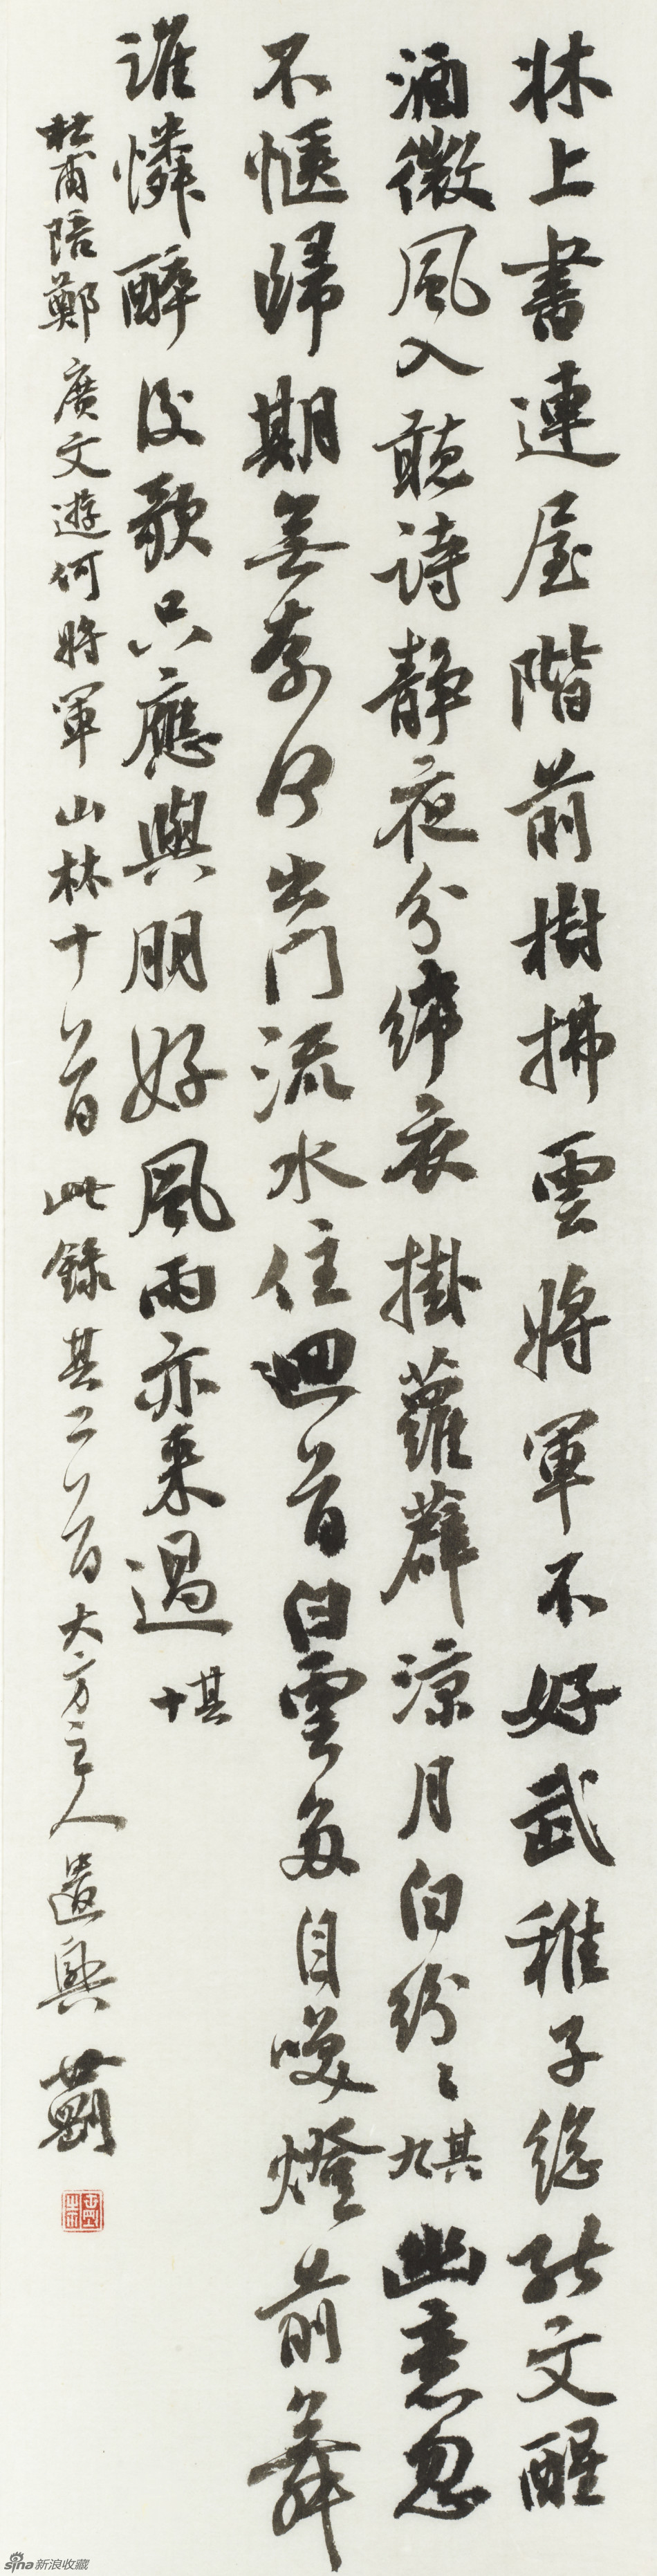 牀上書連屋階前樹拂雲將軍不好武稚子總能文醒
酒微風入聽詩靜夜分絺衣掛蘿薜涼月白紛〻其九幽意忽
不愜歸期無奈何出門流水住迴首白雲多自咲燈前舞
誰憐醉後歌只應與朋好風雨亦来過其十
杜甫陪鄭廣文遊何將軍山林十首此錄其二首大方主人遣興
sina新浪收藏